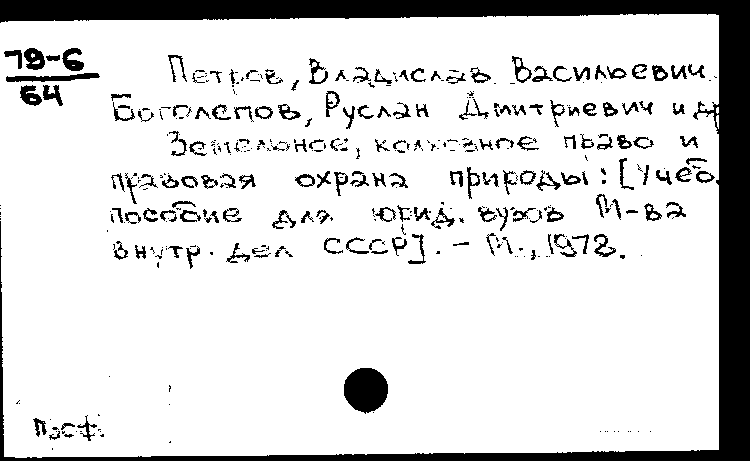 79-6
64
Петров, Владислав Васильевич
Боголепов, Руслан Дмитриевич и др
Земельное, колхозное право и
правовая охрана природы: [Учеб.
пособие для юрид. вузов М-ва
внутр. дел СССР]. - М., 1978.